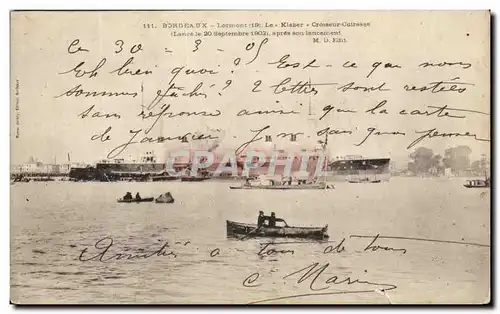 111. BORDEAUX - Lormont (19). Le « Kléber » Croiseur-Cuirassé
(Lancé le 20 Septembre 1902), après son lancement
M. D. Edit.
Ce 30 - 3 - 05
Eh bien quoi ? Est-ce que nous
sommes fâchés ? 2 lettres sont restées
sans réponse ainsi que la carte
de Janvier Je ne sais que penser
CARTHAPICS
Amitiés à tous de tous
C. Marin